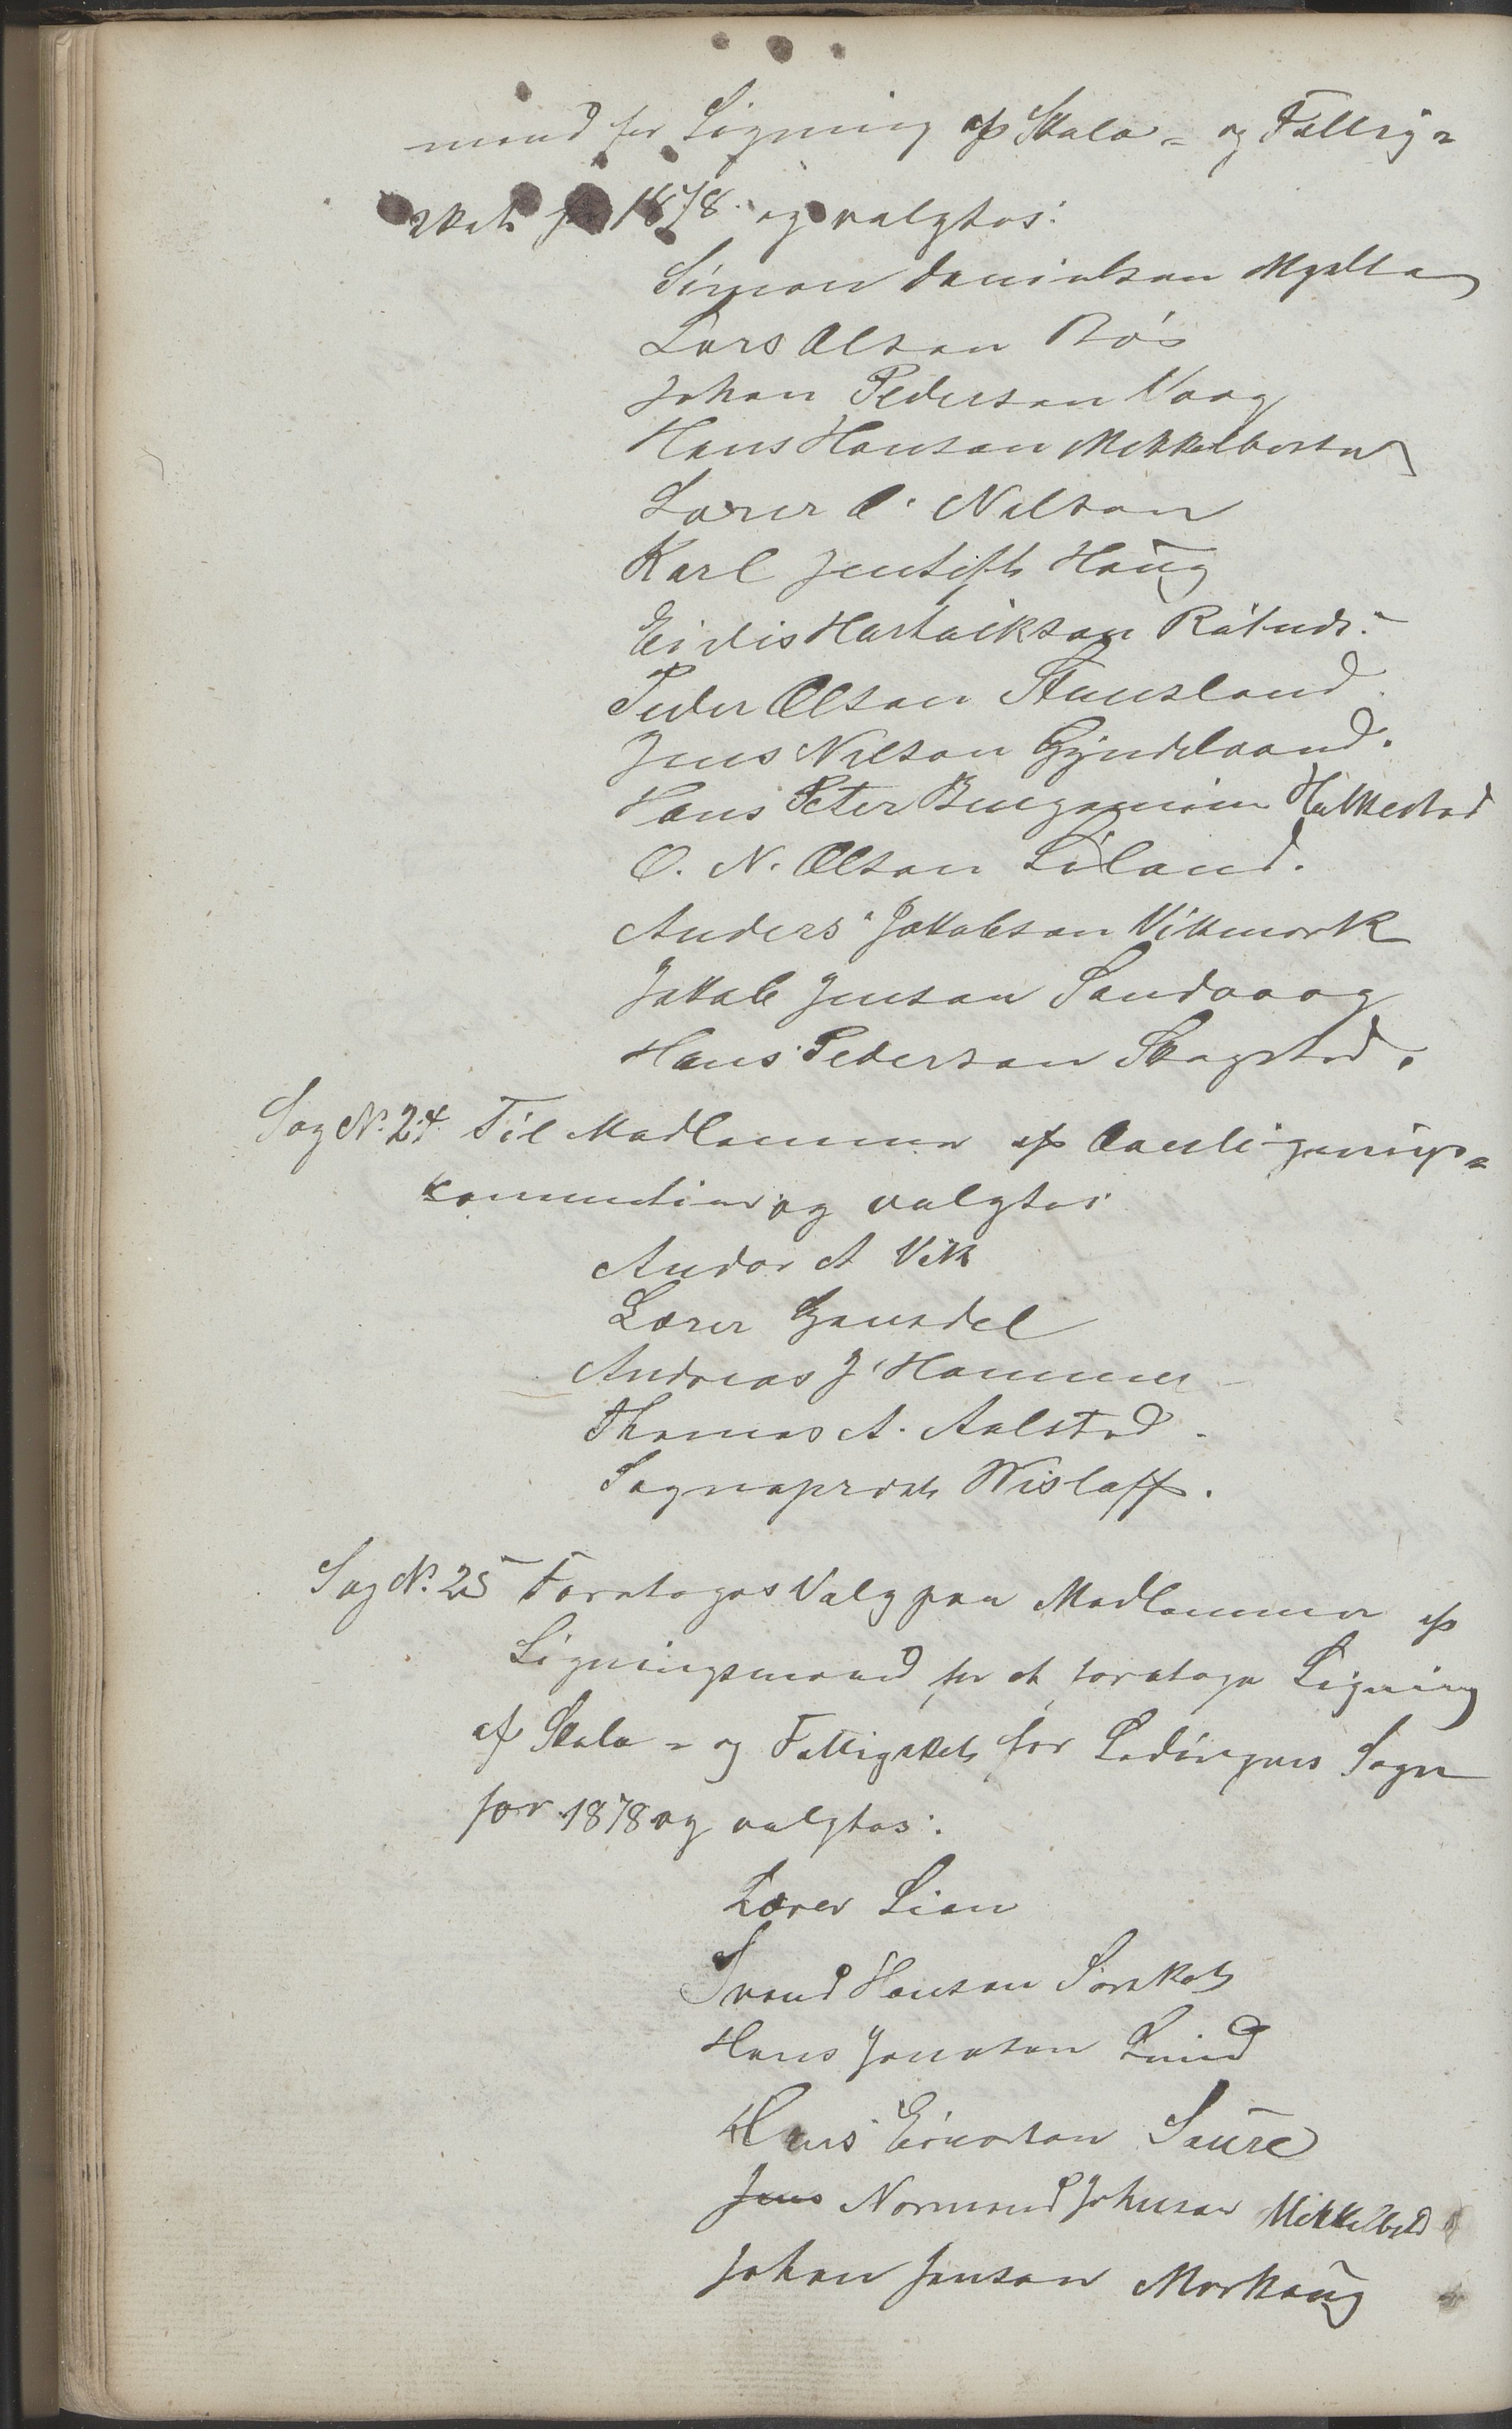 mænd for Ligning af Skole- og Fattig-
skat for 1878 og valgtes:
Simon Danielsen
Lars Olsen Bø
Johan Pedersen Vaag
Hans Hansen Mikkelbostad
Lærer O. Nilsen
Karl Jentoft Haug
Hartviksen
Peder Olsen Stensland
Jens Nilsen
Hans Peter Benjamin
O. N. Olsen Liland.
Anders Jakobsen Vikmark
Jakob Jensen Sandvaag
Hans Pedersen Skagstad.
Sag No. 24. Til Medlemmer af Overlignings-
kommission og valgtes
Andor A Vik
Lærer
Andreas J Hammer
Thomas A. Aalstad.
Sogneprest Wisløff.
Sag No. 25 Foretoges Valg paa Medlemmer af
Ligningsmænd for at foretage Ligning
af Skole- og Fattigskat for Lødingens Sogn
for 1878 og valgtes:
Lærer Lian
Svend Hansen
Hans Jonassen Lund
Hans Einarsen Saure
Jens Normand Johnsen Mikkelbost
Johan Jensen